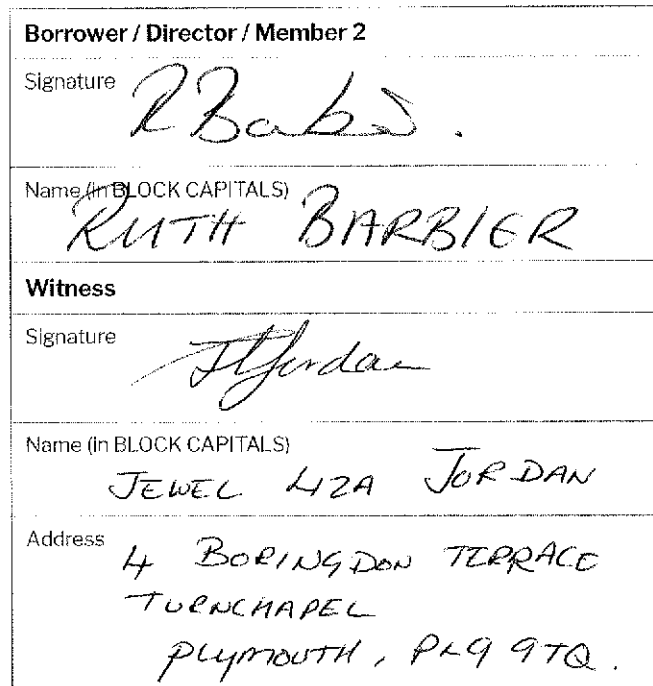 Borrower / Director / Member 2
Signature
R Barbier.
Name (in BLOCK CAPITALS)
RUTH BARBIER
Witness
Signature
JLJordan
Name (in BLOCK CAPITALS)
JEWEL LIZA JORDAN
Address
4 BORINGDON TERRACE
TURNCHAPEL
PLYMOUTH, PL9 9TQ.